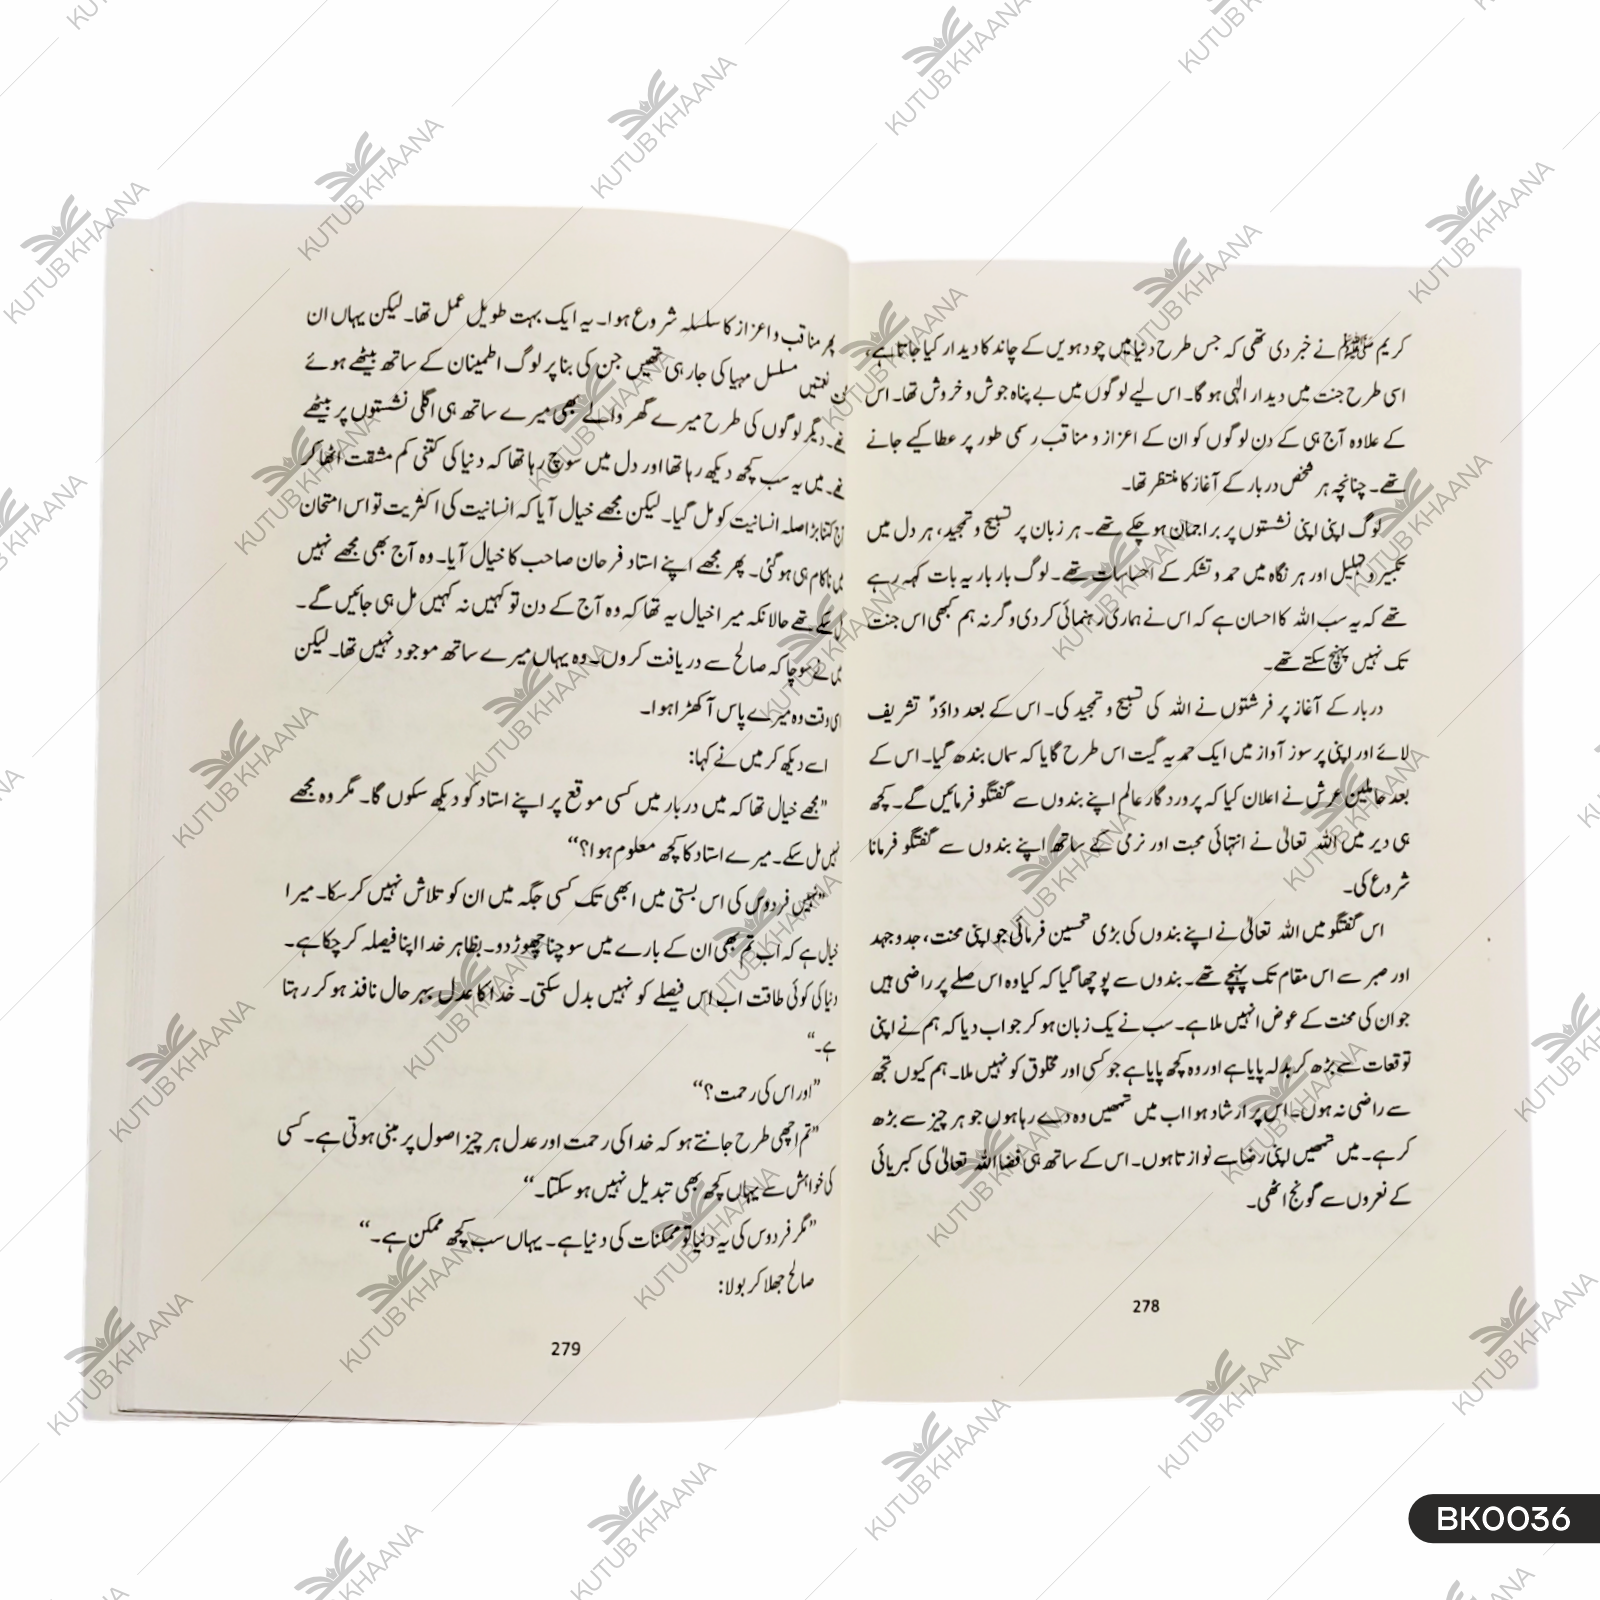 کریم ﷺ نے خبر دی تھی کہ جس طرح دنیا میں چودہویں کے چاند کا دیدار کیا جاتا ہے،
اسی طرح جنت میں دیدار الٰہی ہو گا۔ اس لیے لوگوں میں بے پناہ جوش و خروش تھا۔ اس
کے علاوہ آج ہی کے دن لوگوں کو ان کے اعزاز و مناقب رسمی طور پر عطا کیے جانے
تھے۔ چنانچہ ہر شخص دربار کے آغاز کا منتظر تھا۔
لوگ اپنی اپنی نشستوں پر براجمان ہو چکے تھے۔ ہر زبان پر تسبیح و تمجید، ہر دل میں
تکبیر و تہلیل اور ہر نگاہ میں حمد و تشکر کے احساسات تھے۔ لوگ بار بار یہ بات کہہ رہے
تھے کہ یہ سب اللہ کا احسان ہے کہ اس نے ہماری رہنمائی کر دی وگرنہ ہم کبھی اس جنت
تک نہیں پہنچ سکتے تھے۔
دربار کے آغاز پر فرشتوں نے اللہ کی تسبیح و تمجید کی۔ اس کے بعد داؤدؑ تشریف
لائے اور اپنی پر سوز آواز میں ایک حمدیہ گیت اس طرح گایا کہ سماں بندھ گیا۔ اس کے
بعد حاملین عرش نے اعلان کیا کہ پروردگار عالم اپنے بندوں سے گفتگو فرمائیں گے۔ کچھ
ہی دیر میں اللہ تعالیٰ نے انتہائی محبت اور نرمی کے ساتھ اپنے بندوں سے گفتگو فرمانا
شروع کی۔
اس گفتگو میں اللہ تعالیٰ نے اپنے بندوں کی بڑی تحسین فرمائی جو اپنی محنت، جدوجہد
اور صبر سے اس مقام تک پہنچے تھے۔ بندوں سے پوچھا گیا کہ کیا وہ اس صلے پر راضی ہیں
جو ان کی محنت کے عوض انہیں ملا ہے۔ سب نے یک زبان ہو کر جواب دیا کہ ہم نے اپنی
توقعات سے بڑھ کر بدلہ پایا ہے اور وہ کچھ پایا ہے جو کسی اور مخلوق کو نہیں ملا۔ ہم کیوں تجھ
سے راضی نہ ہوں۔ اس پر ارشاد ہوا اب میں تمھیں وہ دے رہا ہوں جو ہر چیز سے بڑھ
کر ہے۔ میں تمھیں اپنی رضا سے نوازتا ہوں۔ اس کے ساتھ ہی فضا اللہ تعالیٰ کی کبریائی
کے نعروں سے گونج اٹھی۔
278
پھر مناقب و اعزاز کا سلسلہ شروع ہوا۔ یہ ایک بہت طویل عمل تھا۔ لیکن یہاں ان
نعمتیں مسلسل مہیا کی جا رہی تھیں جن کی بنا پر لوگ اطمینان کے ساتھ بیٹھے ہوئے
تھے۔ دیگر لوگوں کی طرح میرے گھر والے بھی میرے ساتھ ہی اگلی نشستوں پر بیٹھے
تھے۔ میں یہ سب کچھ دیکھ رہا تھا اور دل میں سوچ رہا تھا کہ دنیا کی کتنی کم مشقت اٹھا کر
آج کتنا بڑا صلہ انسانیت کو مل گیا۔ لیکن مجھے خیال آیا کہ انسانیت کی اکثریت تو اس امتحان
میں ناکام ہی ہو گئی۔ پھر مجھے اپنے استاد فرحان صاحب کا خیال آیا۔ وہ آج بھی مجھے نہیں
مل سکے تھے حالانکہ میرا خیال یہ تھا کہ وہ آج کے دن تو کہیں نہ کہیں مل ہی جائیں گے۔
میں نے سوچا کہ صالح سے دریافت کروں۔ وہ یہاں میرے ساتھ موجود نہیں تھا۔ لیکن
اسی وقت وہ میرے پاس آ کھڑا ہوا۔
اسے دیکھ کر میں نے کہا:
”مجھے خیال تھا کہ میں دربار میں کسی موقع پر اپنے استاد کو دیکھ سکوں گا۔ مگر وہ مجھے
نہیں مل سکے۔ میرے استاد کا کچھ معلوم ہوا؟“
”نہیں فردوس کی اس بستی میں ابھی تک کسی جگہ میں ان کو تلاش نہیں کر سکا۔ میرا
خیال ہے کہ اب تم بھی ان کے بارے میں سوچنا چھوڑ دو۔ بظاہر خدا اپنا فیصلہ کر چکا ہے۔
دنیا کی کوئی طاقت اب اس فیصلے کو نہیں بدل سکتی۔ خدا کا عدل بہر حال نافذ ہو کر رہتا
ہے۔“
”اور اس کی رحمت؟“
”تم اچھی طرح جانتے ہو کہ خدا کی رحمت اور عدل ہر چیز اصول پر مبنی ہوتی ہے۔ کسی
کی خواہش سے یہاں کچھ بھی تبدیل نہیں ہو سکتا۔“
”مگر فردوس کی یہ دنیا تو ممکنات کی دنیا ہے۔ یہاں سب کچھ ممکن ہے۔“
صالح جھلا کر بولا:
279
KUTUB KHAANA
BK0036